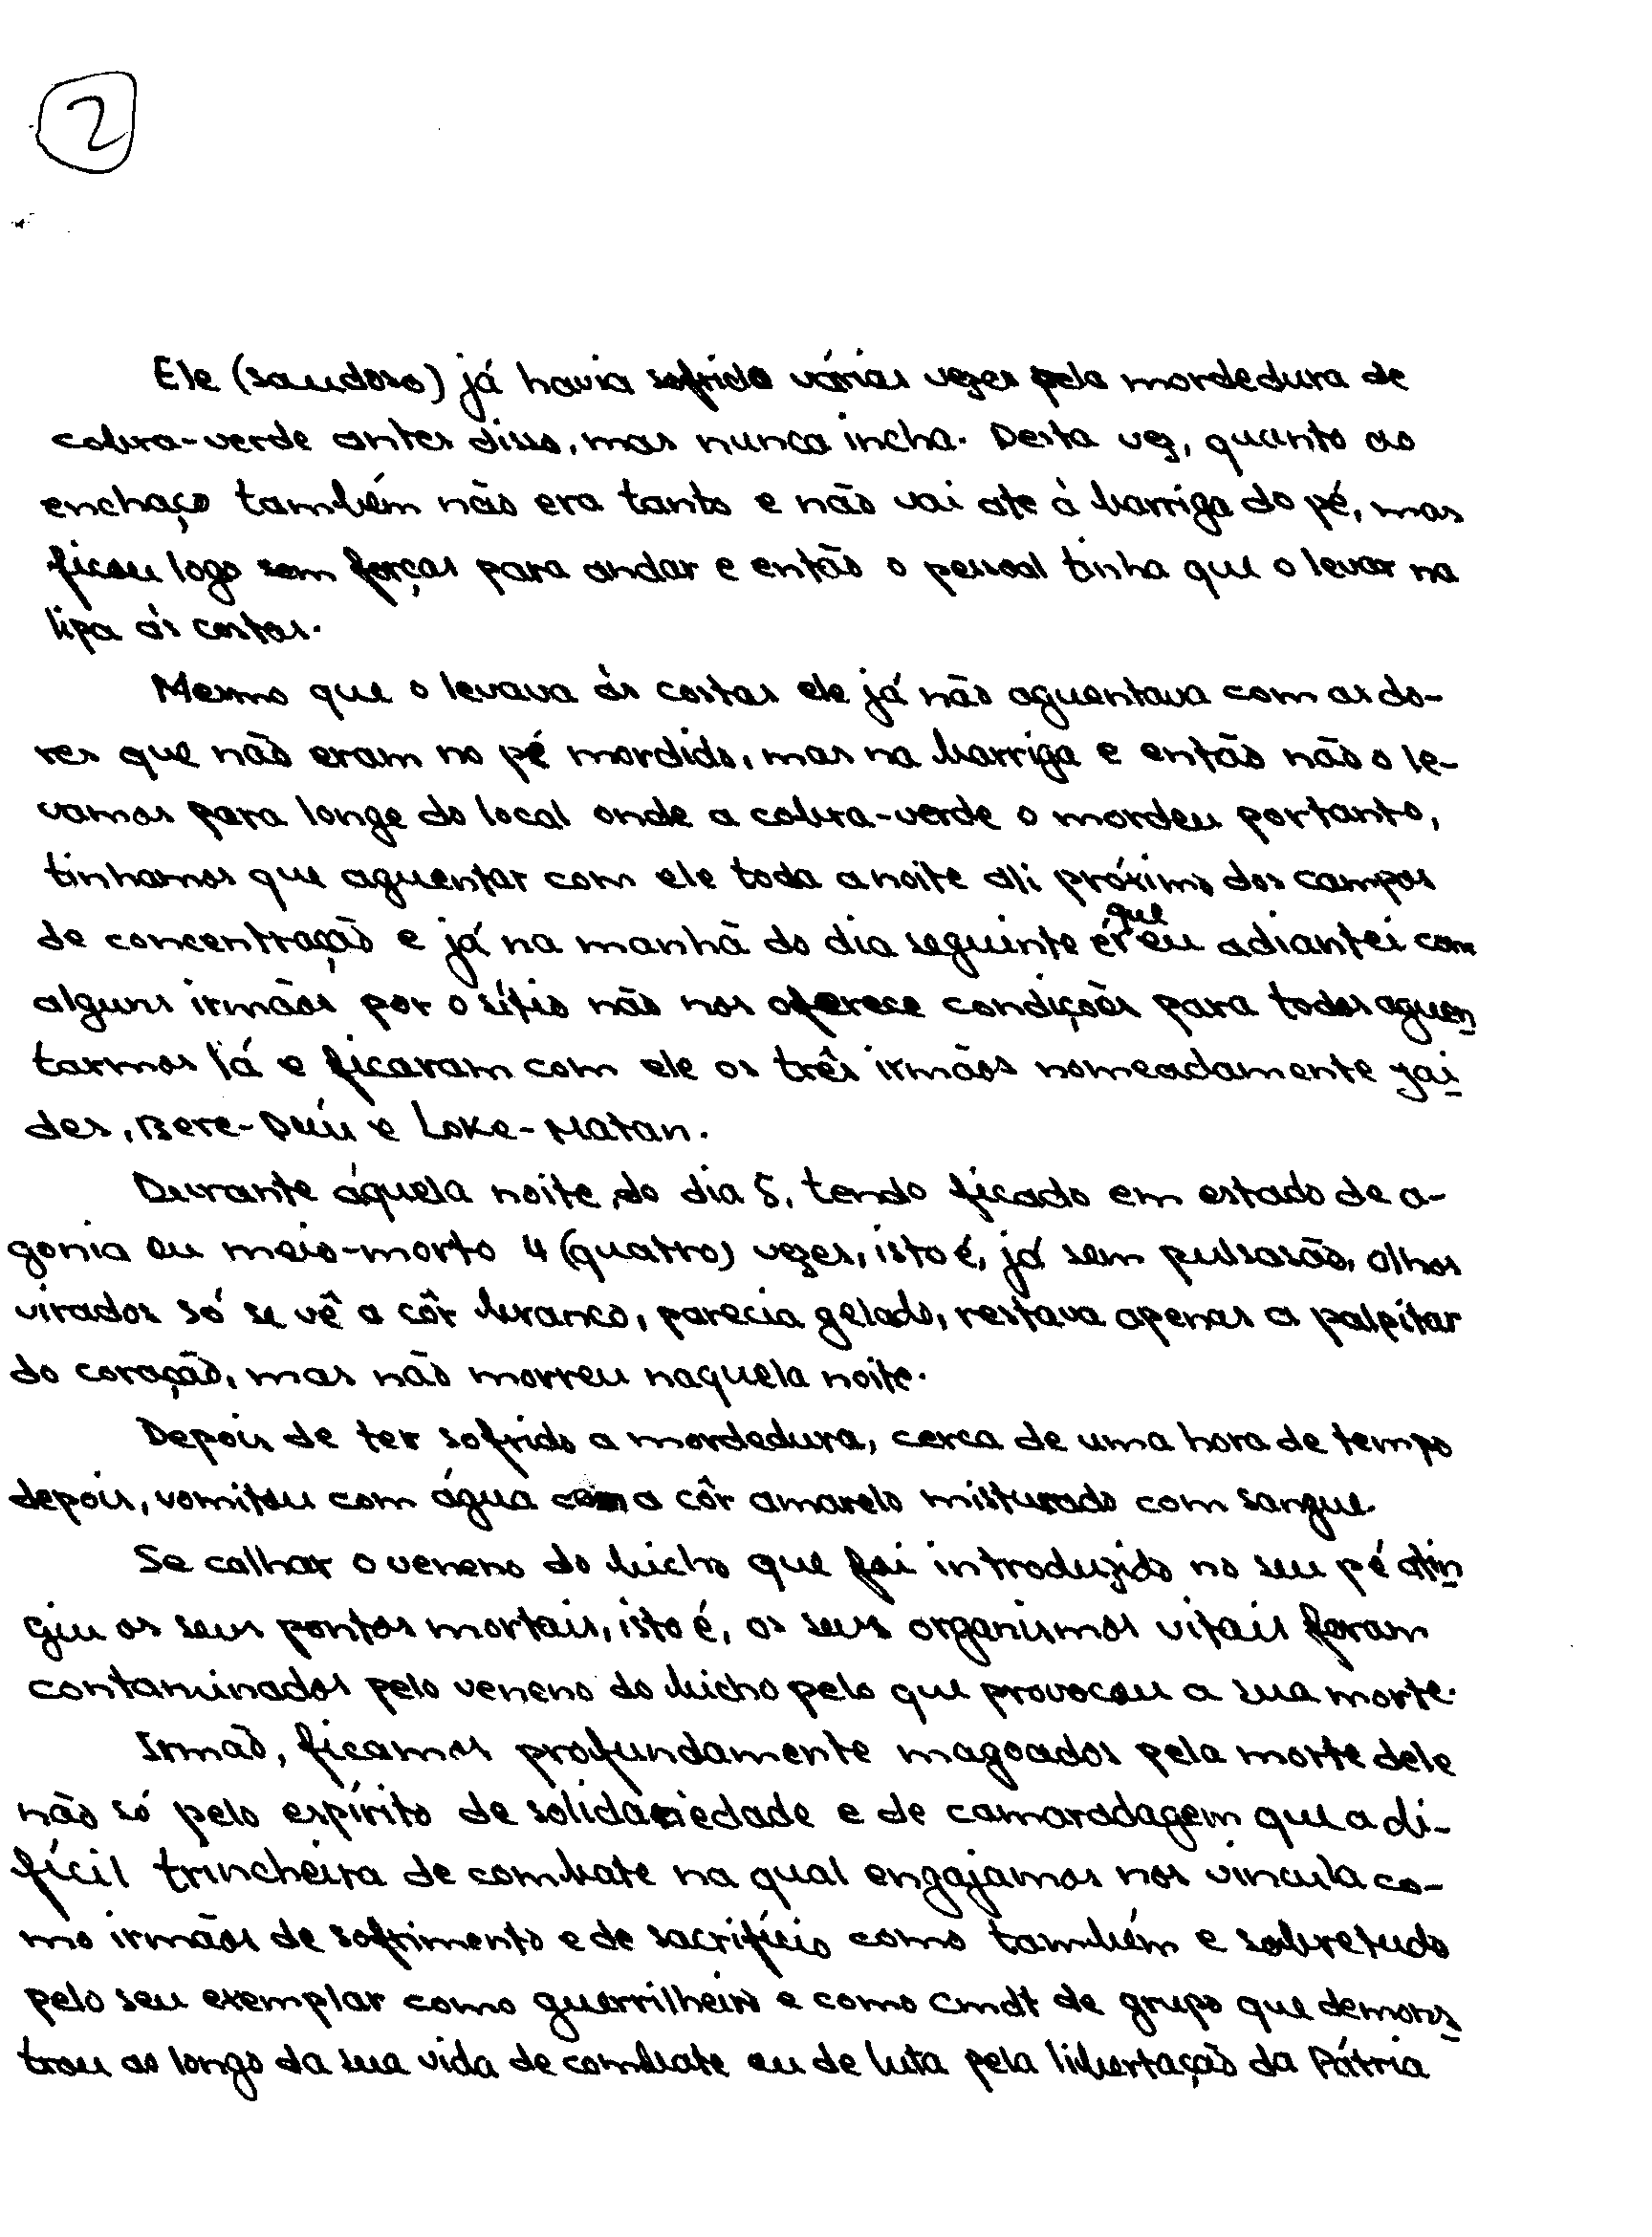 2
Ele (saudoso) já havia sofrido várias vezes pela mordedura de
cobra-verde antes disso, mas nunca incha. Desta vez, quanto ao
enchaço também não era tanto e não vai ate à barriga do pé, mas
ficou logo sem forças para andar e então o pessoal tinha que o levar na
lipa às costas.
Mesmo que o levava às costas ele já não aguentava com as do-
res que não eram no pé mordido, mas na barriga e então não o le-
vamos para longe do local onde a cobra-verde o mordeu portanto,
tinhamos que aguentar com ele toda a noite ali próximo dos campos
de concentração e já na manhã do dia seguinte é que eu adiantei com
alguns irmãos por o sítio não nos oferece condições para todos aguen
tarmos lá e ficaram com ele os três irmãos nomeadamente Jai
des, Bere-Duú e Loke-Matan.
Durante àquela noite, do dia 5, tendo ficado em estado de a-
gonia ou meio-morto 4 (quatro) vezes, isto é, já sem pulsasão, olhos
virados só se vê a côr branco, parecia gelado, restava apenas a palpitar
do coração, mas não morreu naquela noite.
Depois de ter sofrido a mordedura, cerca de uma hora de tempo
depois, vomitou com água com a côr amarelo misturado com sangue.
Se calhar o veneno do bicho que foi introduzido no seu pé atin
giu os seus pontos mortais, isto é, os seus organismos vitais foram
contaminados pelo veneno do bicho pelo que provocou a sua morte.
Irmão, ficamos profundamente magoados pela morte dele
não só pelo espírito de solidariedade e de camaradagem que a di-
fícil trincheira de combate na qual engajamos nos vincula co-
mo irmãos de sofrimento e de sacrifício como também e sobretudo
pelo seu exemplar como guerrilheiro e como Cmdt de grupo que demons
trou ao longo da sua vida de combate ou de luta pela libertação da Pátria